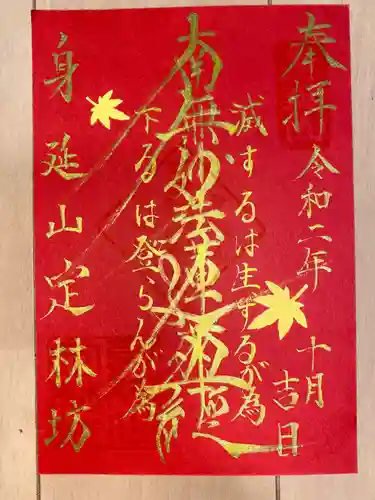 奉拝
令和二年 十月吉日
滅するは生するが為
南無妙法蓮華経
下るは登らんが為
身延山定林坊